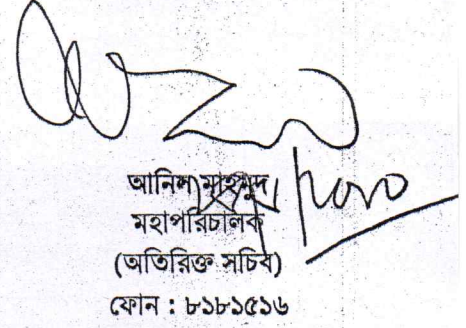 আনিল মাহমুদ
মহাপরিচালক
(অতিরিক্ত সচিব)
ফোন : ৮১৮১৫১৬